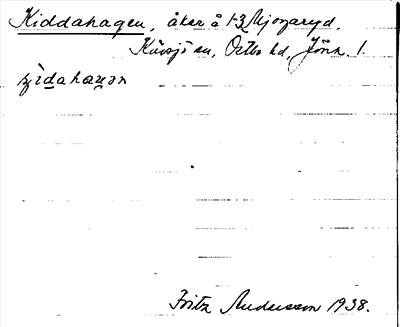 Kiddahagen, åker å 1-3 Mjogaryd,
Kävsjö sn, Östbo hd, Jönk. l.
Fritz Andersson 1938.